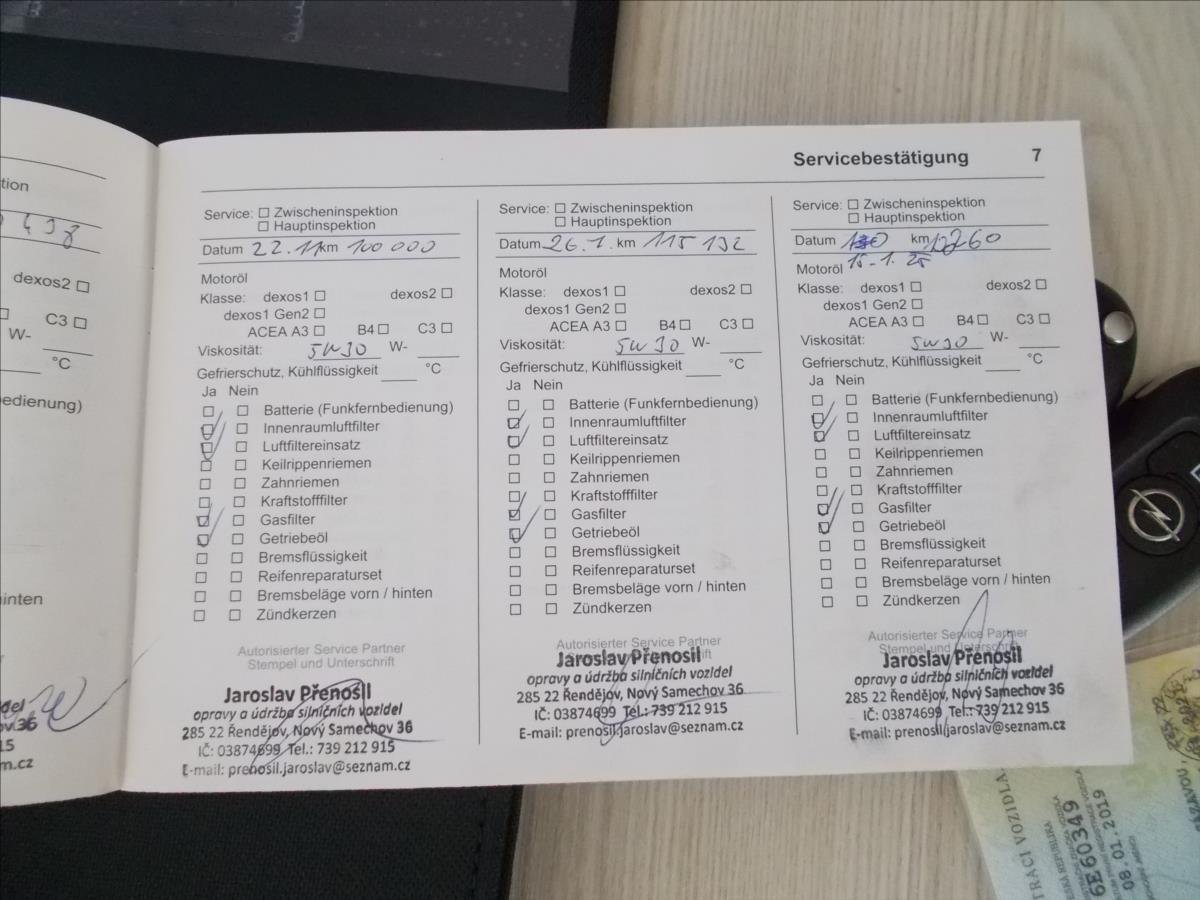 tion
498
dexos2
C3
W-
°C
edienung)
inten
del
ov 36
15
m.cz
Servicebestätigung 7
Service: Zwischeninspektion
Hauptinspektion
Datum 22.11 km 100 000
Motoröl
Klasse: dexos1 dexos2
dexos1 Gen2
ACEA A3 B4 C3
Viskosität: 5W30 W-
Gefrierschutz, Kühlflüssigkeit °C
Ja Nein
Batterie (Funkfernbedienung)
Innenraumluftfilter
Luftfiltereinsatz
Keilrippenriemen
Zahnriemen
Kraftstofffilter
Gasfilter
Getriebeöl
Bremsflüssigkeit
Reifenreparaturset
Bremsbeläge vorn / hinten
Zündkerzen
Autorisierter Service Partner
Stempel und Unterschrift
Jaroslav Přenosil
opravy a údržba silničních vozidel
285 22 Řendějov, Nový Samechov 36
IČ: 03874699 Tel.: 739 212 915
E-mail: prenosil.jaroslav@seznam.cz
Service: Zwischeninspektion
Hauptinspektion
Datum 26.1. km 115 132
Motoröl
Klasse: dexos1 dexos2
dexos1 Gen2
ACEA A3 B4 C3
Viskosität: 5W30 W-
Gefrierschutz, Kühlflüssigkeit °C
Ja Nein
Batterie (Funkfernbedienung)
Innenraumluftfilter
Luftfiltereinsatz
Keilrippenriemen
Zahnriemen
Kraftstofffilter
Gasfilter
Getriebeöl
Bremsflüssigkeit
Reifenreparaturset
Bremsbeläge vorn / hinten
Zündkerzen
Autorisierter Service Partner
Jaroslav Přenosil
opravy a údržba silničních vozidel
285 22 Řendějov, Nový Samechov 36
IČ: 03874699 Tel.: 739 212 915
E-mail: prenosil.jaroslav@seznam.cz
Service: Zwischeninspektion
Hauptinspektion
Datum km
15.1. 25
Motoröl
Klasse: dexos1 dexos2
dexos1 Gen2
ACEA A3 B4 C3
Viskosität: 5W30 W-
Gefrierschutz, Kühlflüssigkeit °C
Ja Nein
Batterie (Funkfernbedienung)
Innenraumluftfilter
Luftfiltereinsatz
Keilrippenriemen
Zahnriemen
Kraftstofffilter
Gasfilter
Getriebeöl
Bremsflüssigkeit
Reifenreparaturset
Bremsbeläge vorn / hinten
Zündkerzen
Autorisierter Service Partner
Stempel und
Jaroslav Přenosil
opravy a údržba silničních vozidel
285 22 Řendějov, Nový Samechov 36
IČ: 03874699 Tel.: 739 212 915
E-mail: prenosil.jaroslav@seznam.cz
TRACI VOZIDLA
6E60349
08.01.2019